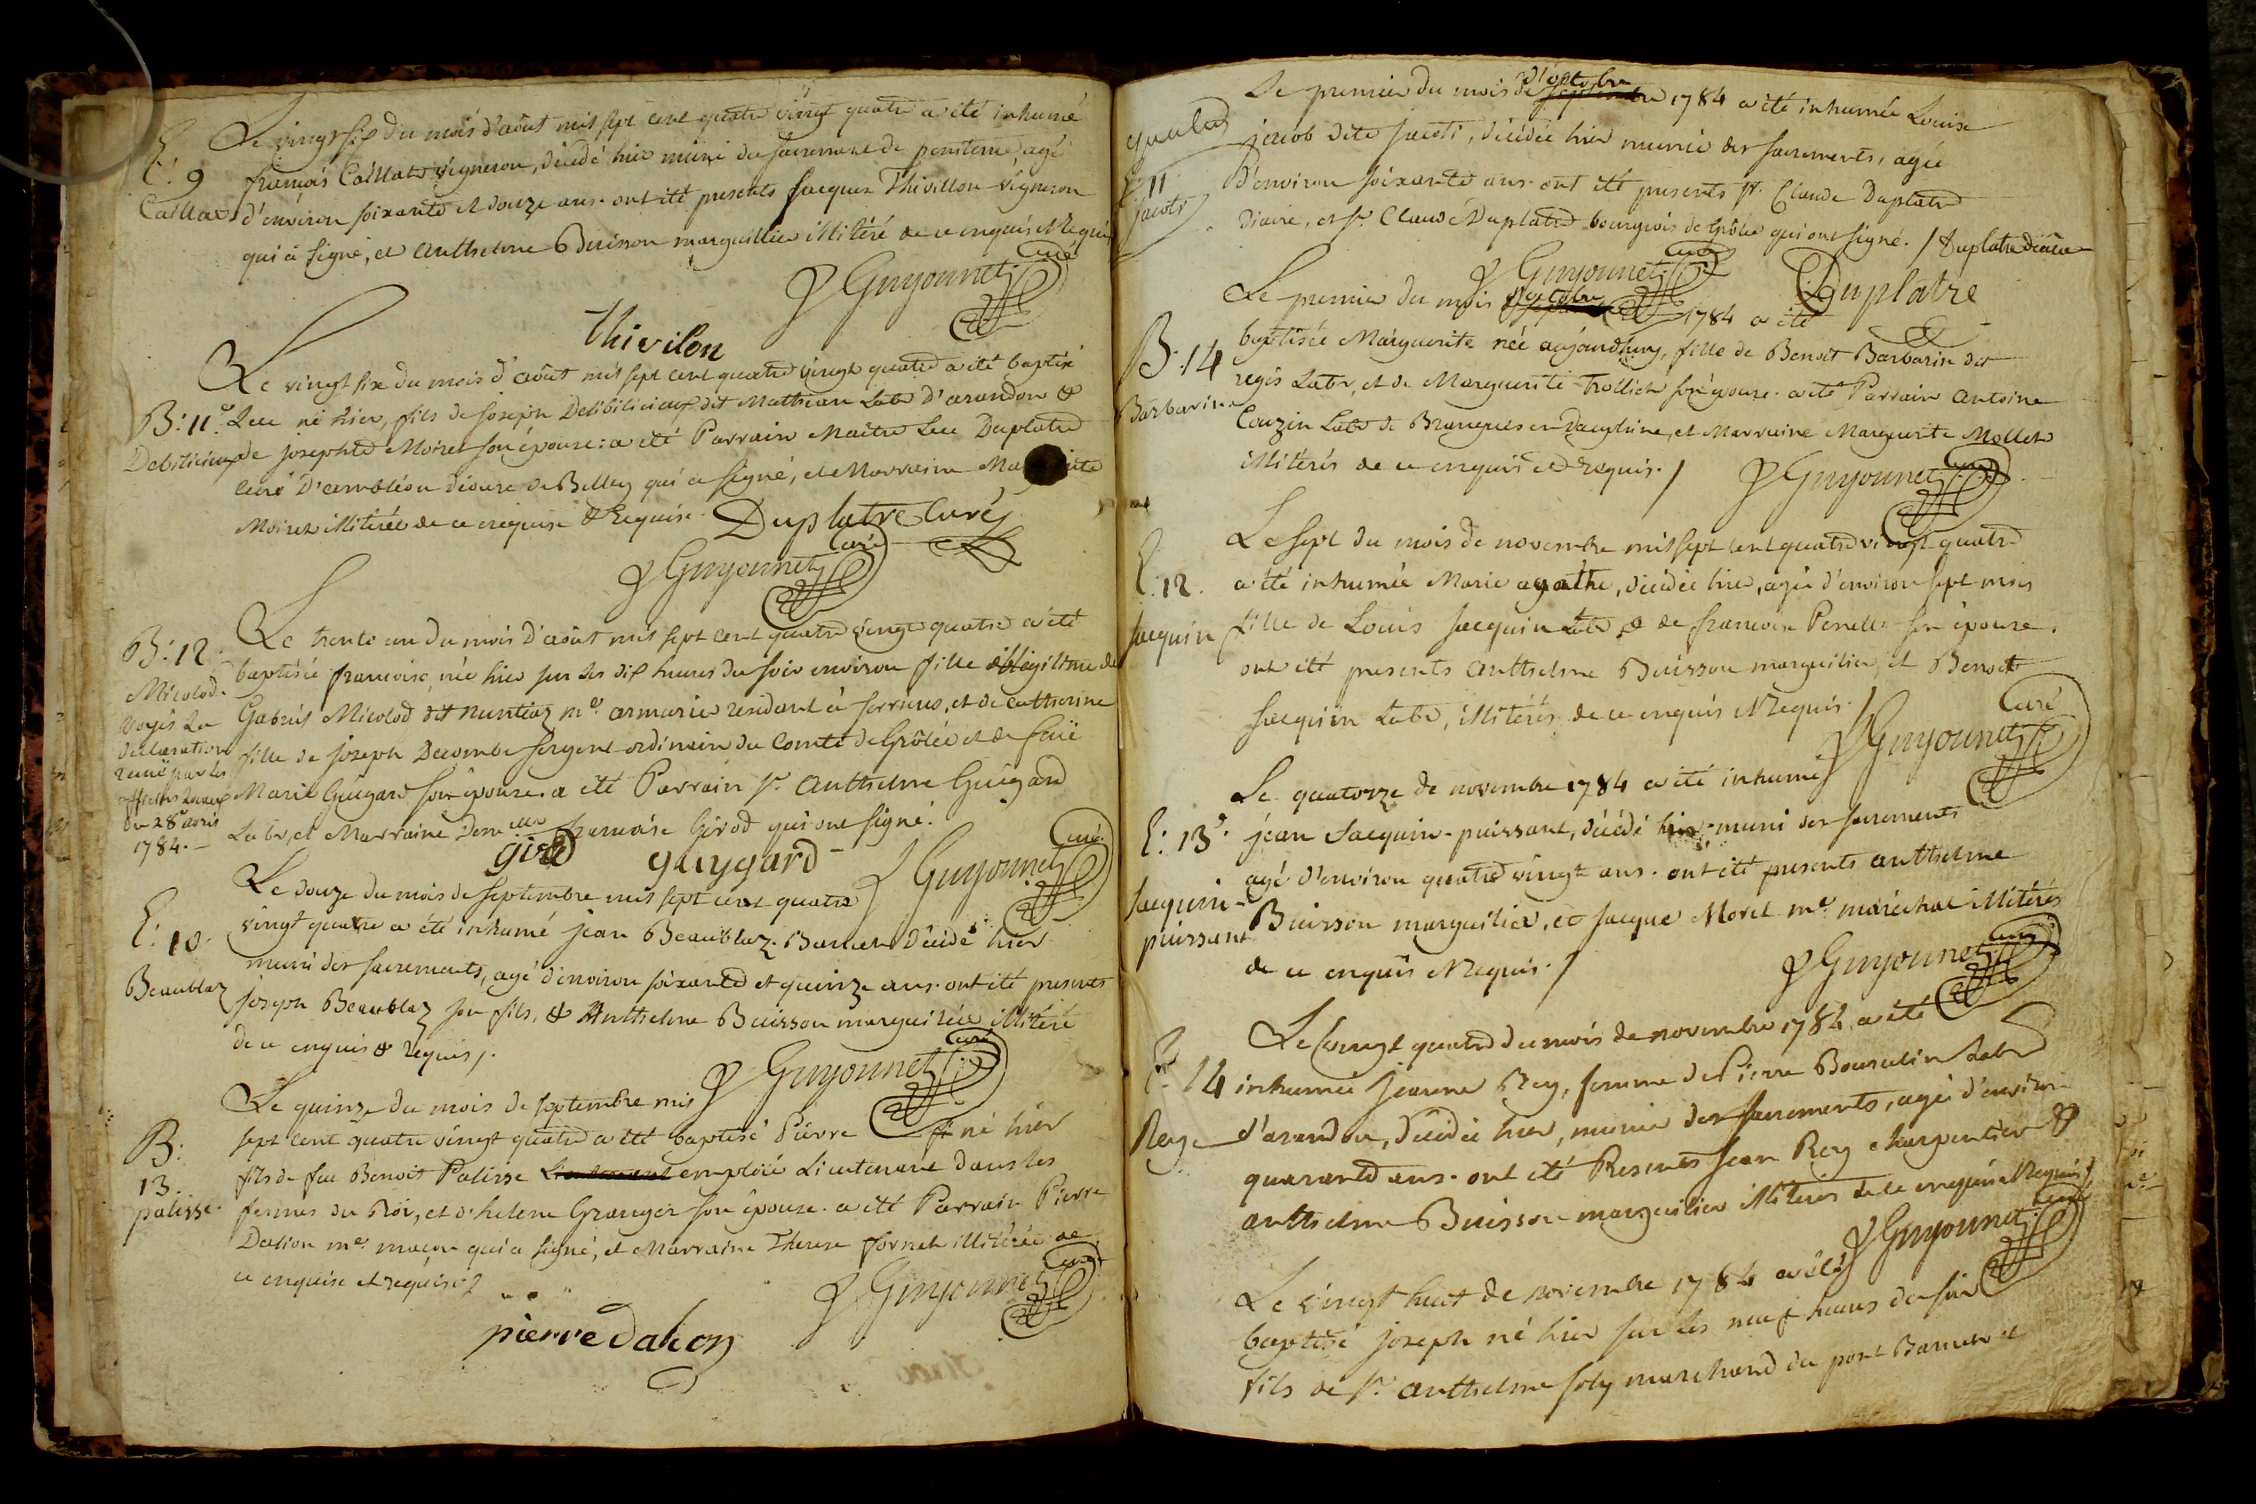 Le vingt six du mois d'août mil sept cent quatre vingt quatre a été inhumé
E. 9 françois Caillat vigneron, décédé hier muni du sacrement de penitence, agé
Caillat d'environ soixante et douze ans. ont été presents jacques Thivillon vigneron
qui a signé, et Anthelme Buisson marguillier illitéré de ce enquis & requis
Guyonnet curé
thivilon
Le vingt six du mois d'août mil sept cent quatre vingt quatre a été baptisé
B: 11e Luc né hier, fils de joseph dit Mathieu Labr d'arandon &
de josephte Moiret son épouse: a été Parrain Maître Luc Duplatre
curé D'ambléon diocese de Belley qui a signé, et Marraine
Moiret illitérée de ce enquise & requise. Duplatre Curé
Guyonnet curé
Le trente un du mois d'août mil sept cent quatre vingt quatre a été
B: 12 baptisée françoise, née hier sur les dix heures du soir environ fille illégitime de
Micolod. Gabriel Micolod dit Nuntiaz me. armurier residant à serrieres, et de catherine
voyés La
declaration fille de joseph Decombe sergent ordinaire du Comté de Grôlée et de
reçuë par les
officiers Marie Guigard son épouse. a été Parrain sr. Anthelme Guigard
du 28 avril
1784. Labr, et Marraine Demlle françoise Girod qui ont signé.
girod guygard Guyonnet curé
Le douze du mois de septembre mil sept cent quatre
E: 10 vingt quatre a été inhumé jean Beaublaz. décédé hier
muni des sacrements, agé d'environ soixante et quinze ans. ont été presents
Beaublaz joseph Beaublaz son fils, & Anthelme Buisson marguillier illitéré
de ce enquis & requis.
Guyonnet curé
Le quinze du mois de septembre mil
B: sept cent quatre vingt quatre a été baptisé Pierre né hier
13. fils de feu Benoit Palisse emploié Lieutenant dans les
palisse. fermes du Roi, et d'helene Granger son épouse. a été Parrain Pierre
Dalion me. maçon qui a signé, et Marraine Therese fornet illitérée de
ce enquise et requise.
Guyonnet curé
pierre dalion
Le premier du mois d'octobre 1784 a été inhumée Louise
jacob dite jacoti, décédée hier munie des sacrements, agée
E: 11 d'environ soixante ans. ont été presents sr. Claude Duplatre
jacob Diacre, et sr. Claude Duplatre bourgeois de Grôlée qui ont signé. / Duplatre diacre
Guyonnet curé Duplatre
Le premier du mois d'octobre 1784 a été
B: 14 baptisée Marguerite née aujourdhuy, fille de Benoit Barbarin dit
regis Labr, et de Marguerite Trollliet son épouse. a été Parrain Antoine
Barbarin Couzin Labr de Brangues en Dauphiné, et Marraine Marguerite Mollet
illitérés de ce enquis et requis. /
Guyonnet curé
Le sept du mois de novembre mil sept cent quatre vingt quatre
E: 12. a été inhumée Marie agathe, décédée hier, agée d'environ sept mois
jacquin fille de Louis jacquin Labr & de françoise Perret son épouse.
ont été presents Anthelme Buisson marguillier, et Benoit
jacquin Labr, illitérés de ce enquis & requis. /
Guyonnet curé
Le quatorze de novembre 1784 a été inhumé
E: 13e. jean Jacquin-puissant, décédé hier muni des sacrements
agé d'environ quatre vingt ans. ont été presents Anthelme
jacquin-
puissant Buisson marguillier, et jacque Morel me. maréchal illitérés
de ce enquis & requis. /
Guyonnet curé
Le vingt quatre du mois de novembre 1784 a été
E: 14 inhumée jeanne Rey, femme de Pierre Bourcelin Labr
Rey d'arandon, décédée hier, munie des sacrements, agée d'environ
quarante ans. ont été Presents jean Rey charpentier &
anthelme Buisson marguillier illitérés de ce enquis & requis /
Guyonnet curé
Le vingt huit de novembre 1784 a été
baptisé joseph né hier sur les neuf heures du soir
fils de sr. anthelme joly marchand du port et